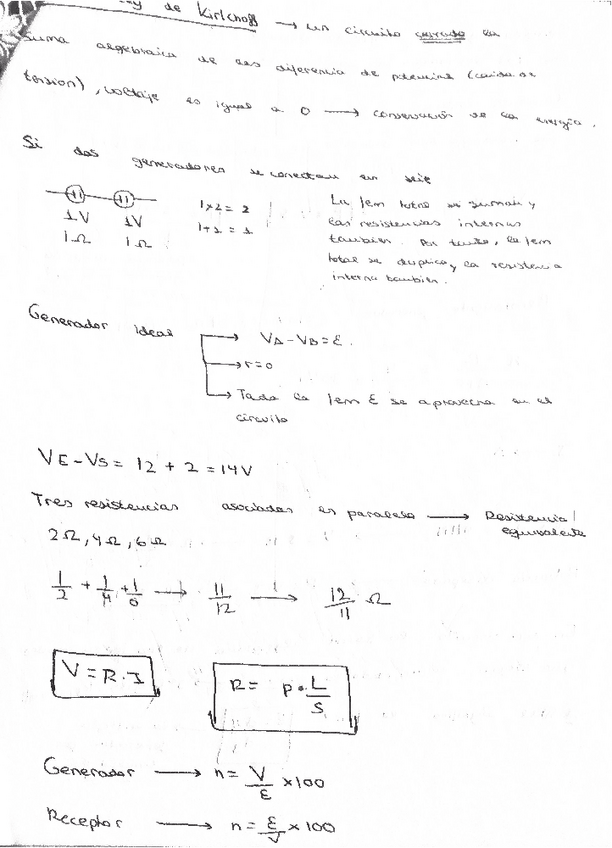 ey de Kirlchoff → un circuito cerrado la
suma algebraica de las diferencia de potencial (caida de
tension), voltaje es igual a 0 → conservación de la energía.
Si dos generadores se conectan en serie
1V 1V
1Ω 1Ω
1+2 = 2
1+1 = 1
La fem total se suman y
las resistencias internas
tambien. Por tanto, la fem
total se duplica y la resistencia
interna tambien.
Generador ideal → VA - VB = ε.
→ r=0
→ Toda la fem ε se aprovecha en el
circuito
VE - VS = 12 + 2 = 14V
Tres resistencias asociadas es paralelo → Resistencia
equivalente
2Ω, 4Ω, 6Ω
1/2 + 1/4 + 1/6 → 11/12 → 12/11 Ω
V = R · I
R = p · L/S
Generador → n = V/ε x 100
Receptor → n = ε/V x 100